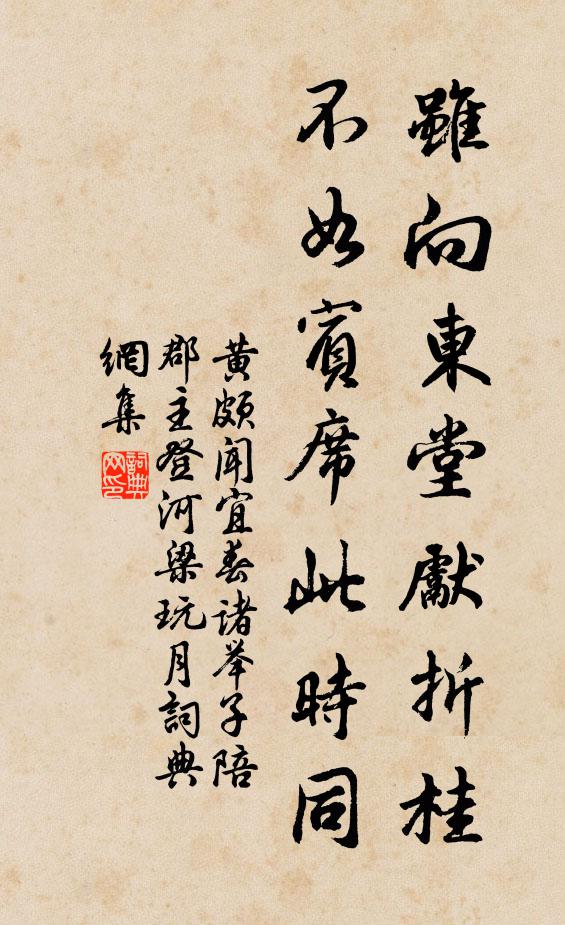 雖向東堂獻折桂
不如賓席此時同
黄頗聞宜春諸举子陪
郡主登河梁玩月詞典
網集
詞典
网印